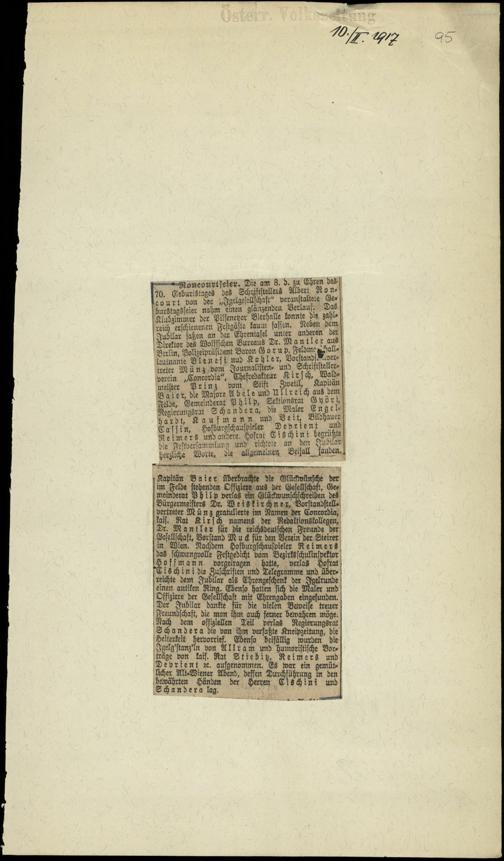 Österr. Volkszeitung
10./II. 1917
95
Roncourtfeier. Die am 8. d. zu Ehren des
70. Geburtstages des Schriftstellers Albert Ron-
court von der „Igelgesellschaft" veranstaltete Ge-
burtstagsfeier nahm einen glänzenden Verlauf. Das
Klubzimmer der Pilsenetzer Bierhalle konnte die zahl-
reich erschienenen Festgäste kaum fassen. Neben dem
Jubilar saßen an der Ehrentafel unter anderen der
Direktor des Wolffschen Bureaus Dr. Mantler aus
Berlin, Polizeipräsident Baron Gorup, Feldmarschall-
leutnante und Kohler, Vorstandsstellver-
treter Münz vom Journalisten- und Schriftsteller-
verein „Concordia", Chefredakteur Kirsch, Wald-
meister Prinz vom Stift Zwettl, Kapitän
Baier, die Majore Abele und Ullreich aus dem
Felde, Gemeinderat Philp, Sektionsrat Györi,
Regierungsrat Schandera, die Maler Engel-
hardt, Kaufmann und Veit, Bildhauer
Cassin, Hofburgschauspieler Devrient und
Reimers und andere. Hofrat Cischini begrüßte
die Festversammlung und richtete an den Jubilar
herzliche Worte, die allgemeinen Beifall fanden.
Kapitän Baier überbrachte die Glückwünsche der
im Felde stehenden Offiziere aus der Gesellschaft, Ge-
meinderat Philp verlas ein Glückwunschschreiben des
Bürgermeisters Dr. Weiskirchner, Vorstandstell-
vertreter Münz gratulierte im Namen der Concordia,
kais. Rat Kirsch namens der Redaktionskollegen,
Dr. Mantler für die reichsdeutschen Freunde der
Gesellschaft, Vorstand Muck für den Verein der Steirer
in Wien. Nachdem Hofburgschauspieler Reimers
das schwungvolle Festgedicht vom Bezirksschulinspektor
Hoffmann vorgetragen hatte, verlas Hofrat
Cischini die Zuschriften und Telegramme und über-
reichte dem Jubilar als Ehrengeschenk der Igelrunde
einen antiken Ring. Ebenso hatten sich die Maler und
Offiziere der Gesellschaft mit Ehrengaben eingefunden.
Der Jubilar dankte für die vielen Beweise treuer
Freundschaft, die man ihm auch ferner bewahren möge.
Nach dem offiziellen Teil verlas Regierungsrat
Schandera die von ihm verfaßte Kneipzeitung, die
Heiterkeit hervorrief. Ebenso beifällig wurden die
Igelg'stanz'ln von Allram und humoristische Vor-
träge von kais. Rat Stiebitz, Reimers und
Devrient ec. aufgenommen. Es war ein gemüt-
licher Alt-Wiener Abend, dessen Durchführung in den
bewährten Händen der Herren Cischini und
Schandera lag.